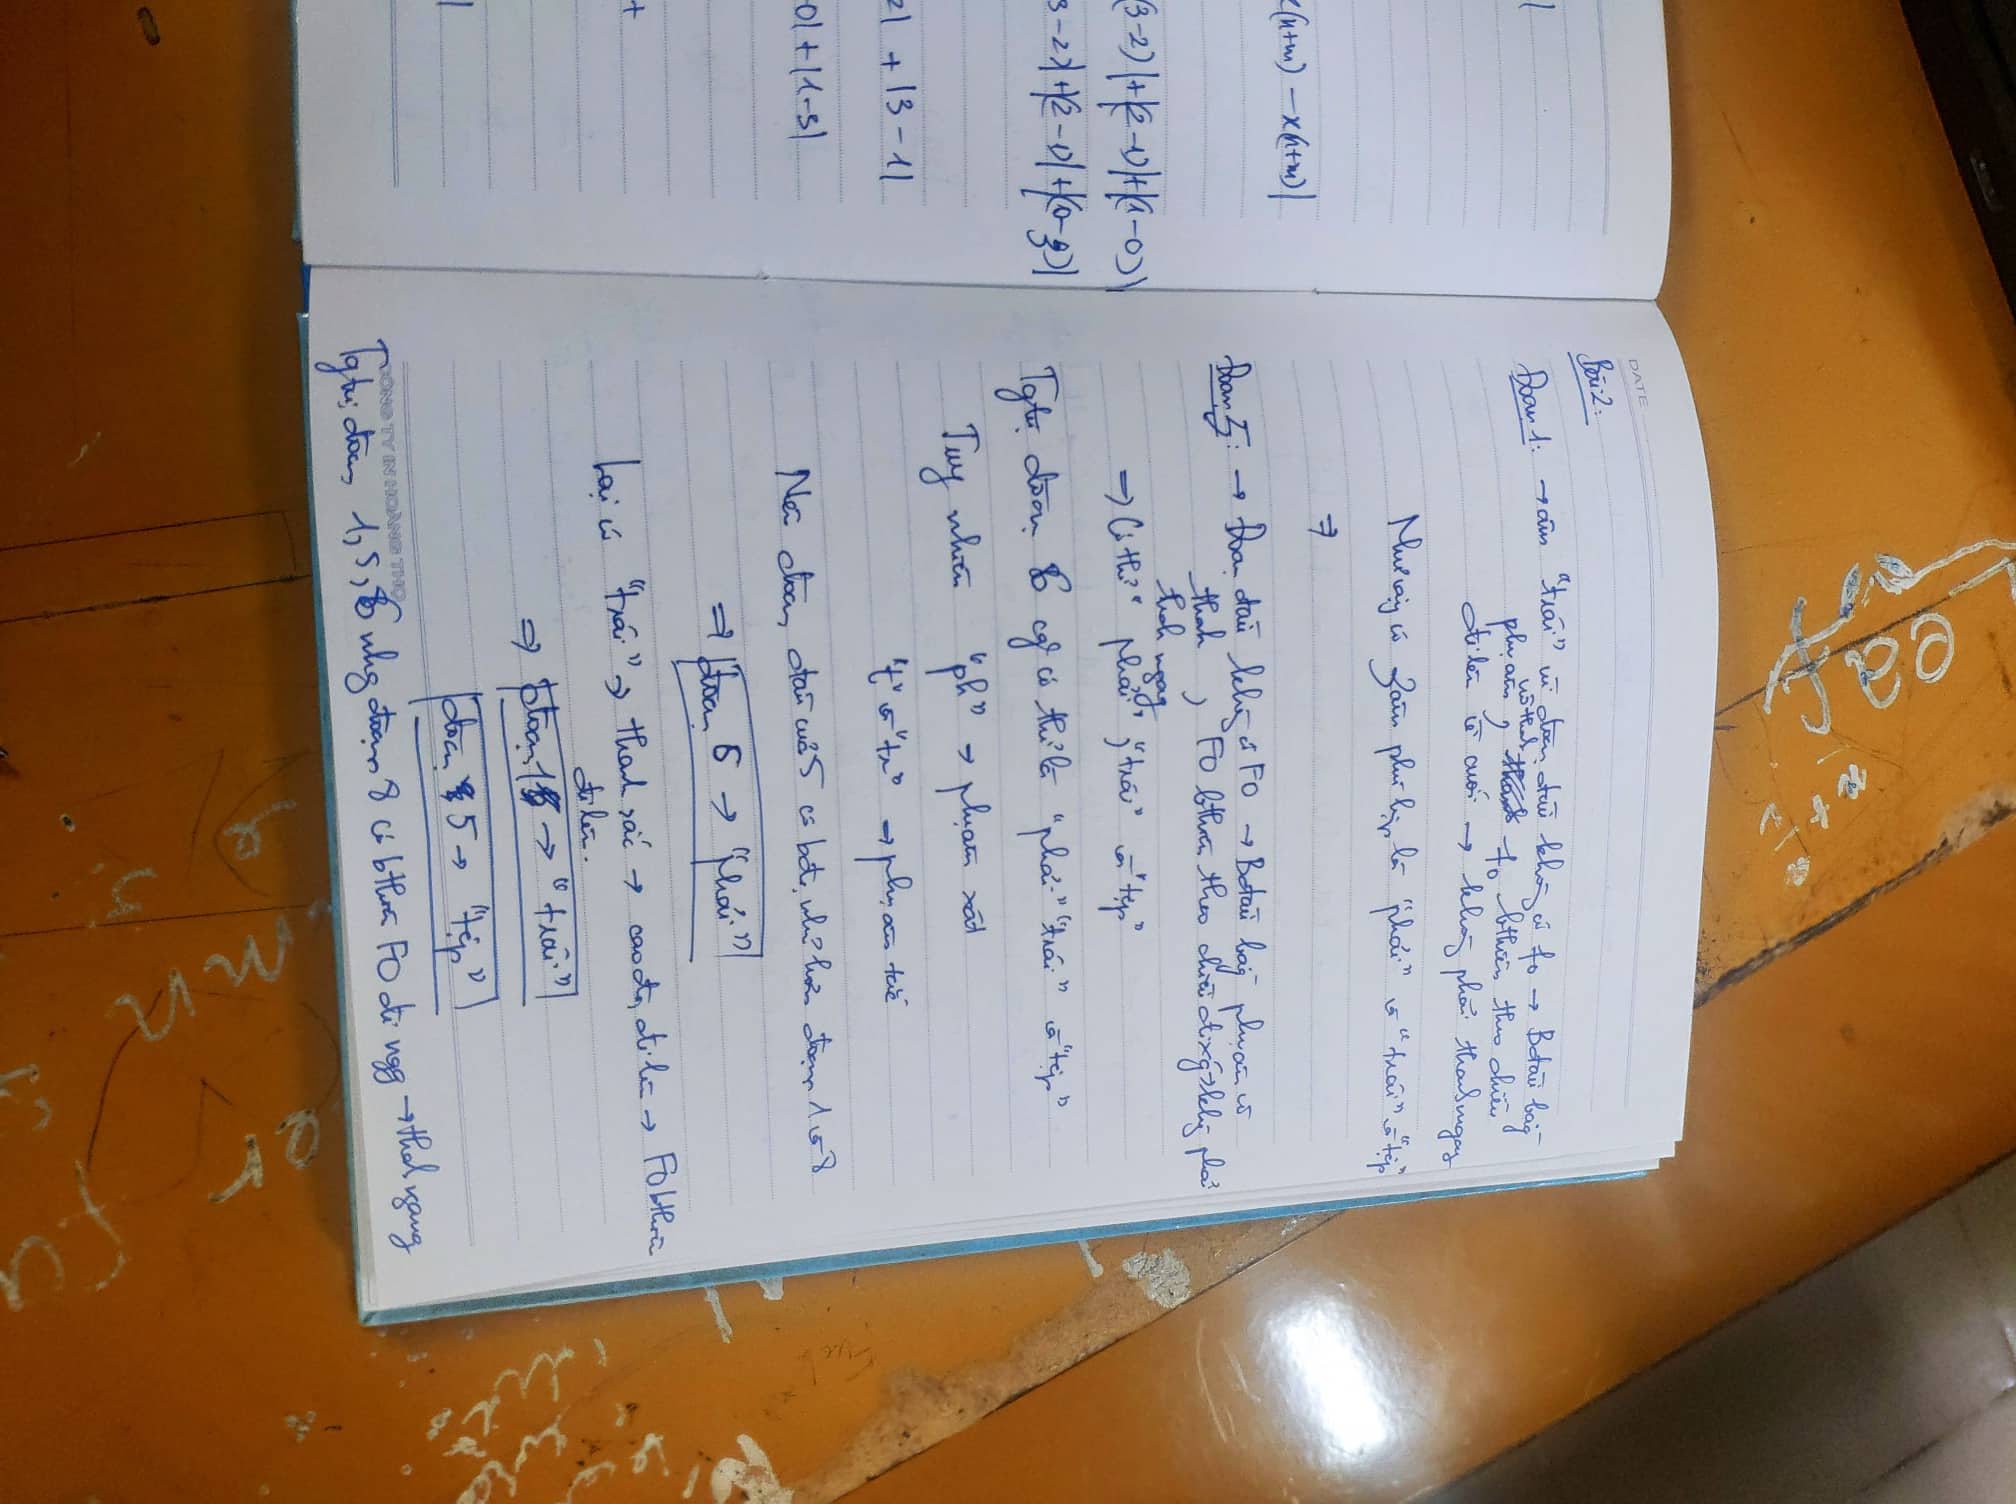 x(n+m) - x(n+m)|
(3-2)|+|(2-1)|+|(1-0)|
3-2)|+|(2-1)|+|(0-3)|
2| + |3-1|
-0| + |1-3|
+
DATE
Bài 2:
Đoạn 1: → âm "trái" vì đoạn đầu không có f0 → Bđầu bằng
phụ âm, f0 bthiên theo chiều
đi lên về cuối → không phải thanh ngang
Như vậy có 3 âm phù hợp là "phải" và "trái" và "tệp"
⇒
Đoạn 5: → Đoạn đầu không có F0 → Bđầu bằng phụ âm và
thanh, F0 bthiên theo chiều đi xg → không phải
thanh ngang
⇒ Có thể "phải", "trái" và "tệp"
Tgtự đoạn 6 cg có thể là "phải" "trái" và "tệp"
Tuy nhiên "ph" → phụ âm xát
"t" và "tr" → phụ âm tắc
Nên đoạn đầu của 5 có bđộ nhỏ hơn đoạn 1 và 8
⇒ đoạn 6 → "phải"
Lại có "trái" → thanh sắc → cao độ đi lên → F0 bthiên
đi lên.
⇒ Đoạn 1 → "trái"
đoạn 5 → "tệp"
CONG TY IN HOANG THO
Tgtự đoạn 1, 5, 6 nhg đoạn 8 có bthiên F0 đi ngg → thanh ngang